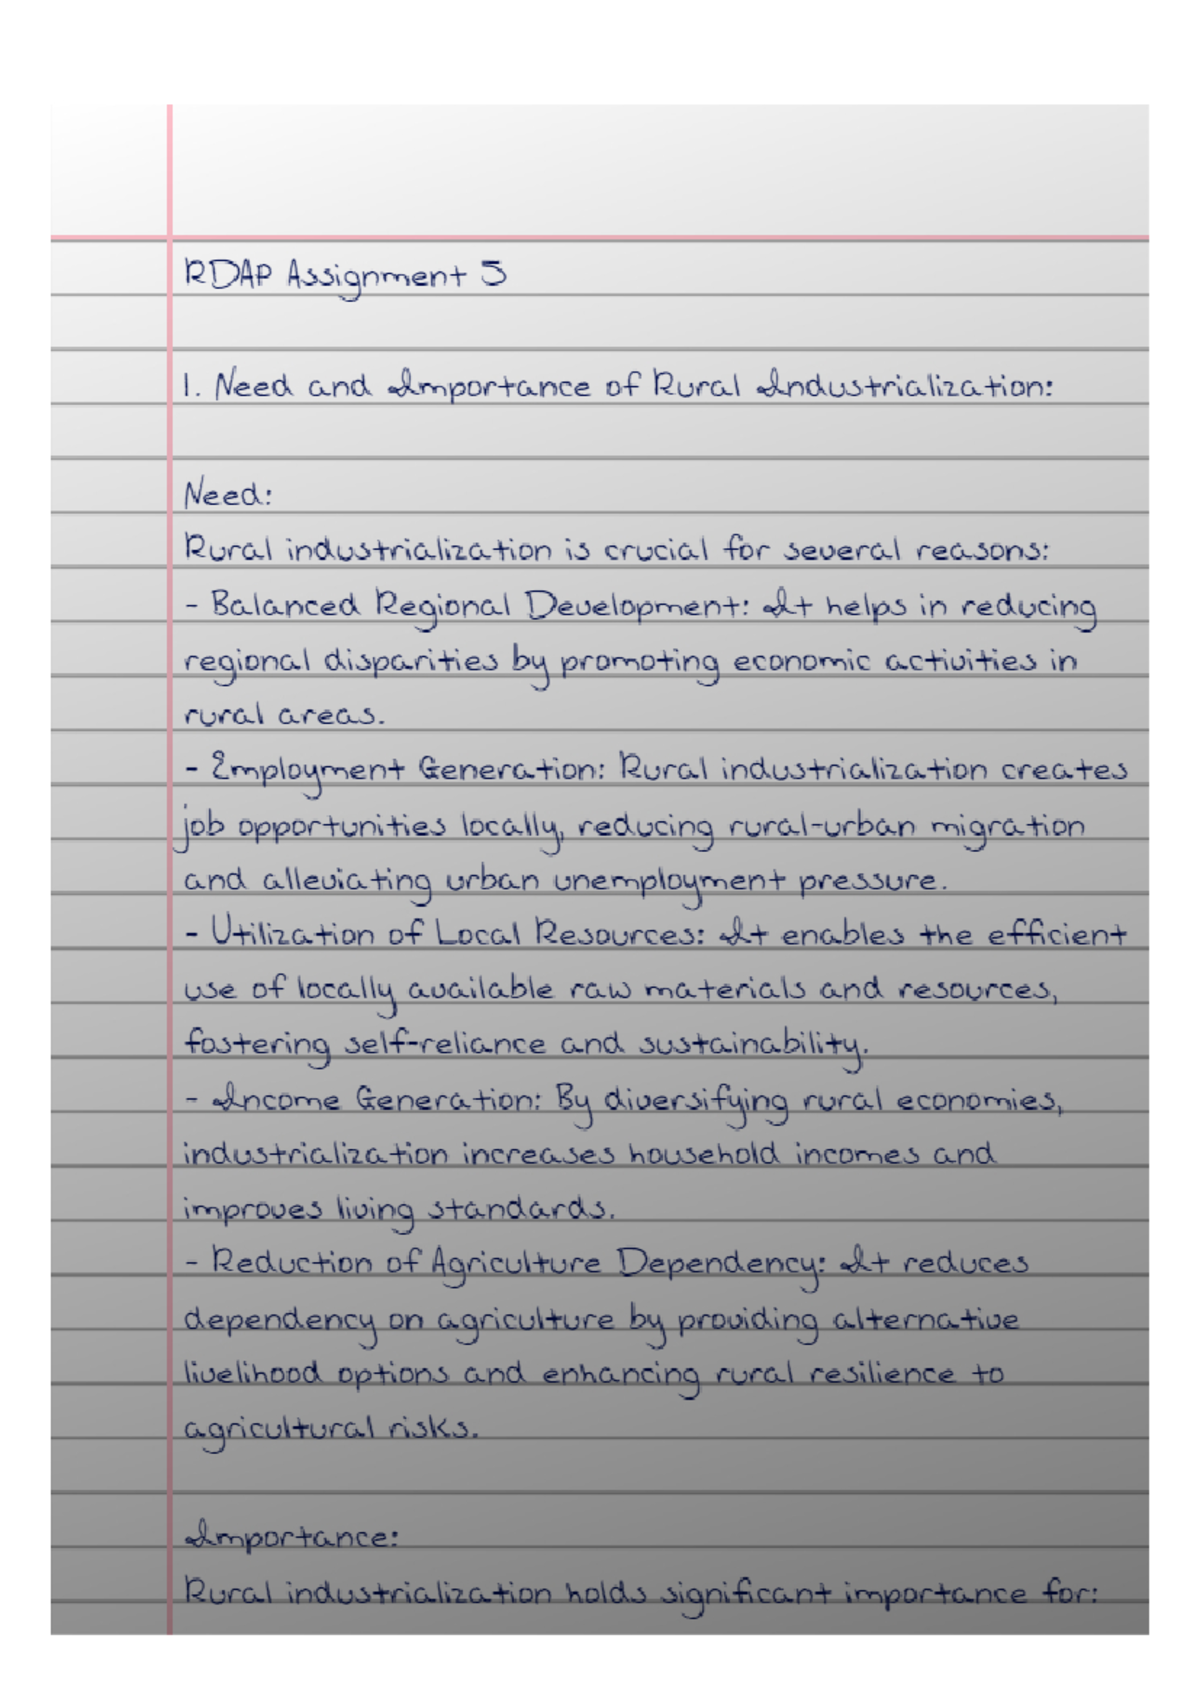 RDAP Assignment 5
1. Need and Importance of Rural Industrialization:
Need:
Rural industrialization is crucial for several reasons:
- Balanced Regional Development: It helps in reducing
regional disparities by promoting economic activities in
rural areas.
- Employment Generation: Rural industrialization creates
job opportunities locally, reducing rural-urban migration
and alleviating urban unemployment pressure.
- Utilization of Local Resources: It enables the efficient
use of locally available raw materials and resources,
fostering self-reliance and sustainability.
- Income Generation: By diversifying rural economies,
industrialization increases household incomes and
improves living standards.
- Reduction of Agriculture Dependency: It reduces
dependency on agriculture by providing alternative
livelihood options and enhancing rural resilience to
agricultural risks.
Importance:
Rural industrialization holds significant importance for: